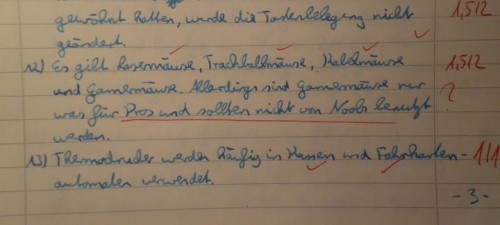 gewöhnt hatten, wurde die Tastenbelegung nicht 1,5/2
geändert.
12) Es gibt Lasermäuse, Trackballmäuse, Halsmäuse 1,5/2
und Gamermäuse. Allerdings sind Gamermäuse nur ?
was für Pros und sollten nicht von Noobs benutzt
werden.
13) Thermodrucker werden häufig in Kassen und Fahrkarten- 1/1
automaten verwendet.
-3-